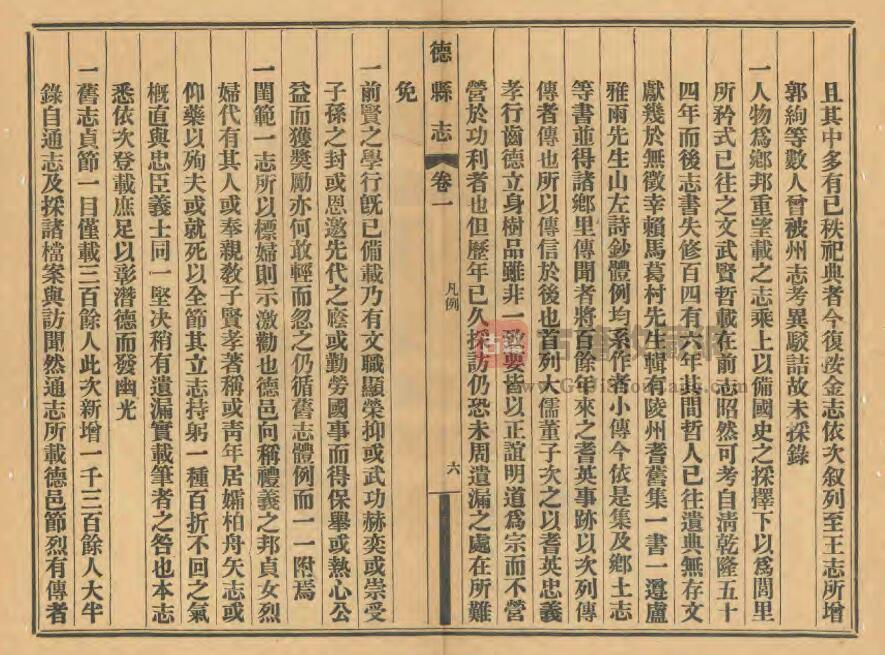 且其中多有已秩祀典者今復按金志依次叙列至王志所增
郭絢等數人曾被州志考異駁詰故未採錄
一人物爲鄉邦重望載之志乘上以備國史之採擇下以爲閭里
所矜式已往之文武賢哲載在前志昭然可考自淸乾隆五十
四年而後志書失修百四有六年其間哲人已往遺典無存文
獻幾於無徵幸賴馬葛村先生輯有陵州耆舊集一書一遵盧
雅雨先生山左詩鈔體例均系作者小傳今依是集及鄉土志
等書並得諸鄉里傳聞者將百餘年來之耆英事跡以次列傳
傳者傳也所以傳信於後也首列大儒董子次之以耆英忠義
孝行齒德立身樹品雖非一致要皆以正誼明道爲宗而不營
營於功利者也但歷年已久採訪仍恐未周遺漏之處在所難
免
德縣志 卷一 凡例 六
一前賢之學行旣已備載乃有文職顯榮抑或武功赫奕或崇受
子孫之封或恩邀先代之廕或勤勞國事而得保舉或熱心公
益而獲獎勵亦何敢輕而忽之仍循舊志體例而一一附焉
一閨範一志所以標婦則示激勸也德邑向稱禮義之邦貞女烈
婦代有其人或奉親敎子賢孝著稱或靑年居孀柏舟矢志或
仰藥以殉夫或就死以全節其立志持躬一種百折不回之氣
槪直與忠臣義士同一堅决稍有遺漏實載筆者之咎也本志
悉依次登載庶足以彰潛德而發幽光
一舊志貞節一目僅載三百餘人此次新增一千三百餘人大半
錄自通志及採諸檔案與訪聞然通志所載德邑節烈有傳者